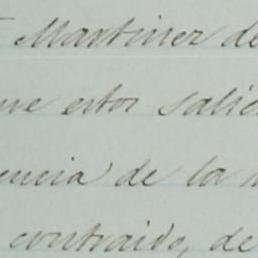 Martinez de
ue estos salie
encia de la
contraido, de